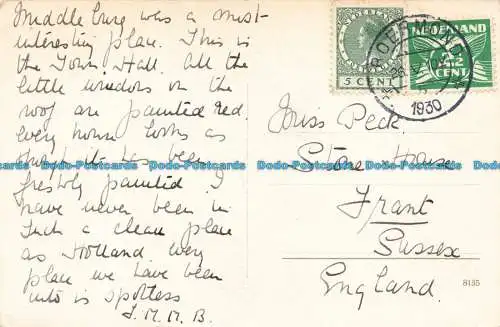 Middleburg was a most
interesting place. This is
the Town Hall. All the
little windows on the
roof are painted red.
Every house looks as
though it has been
freshly painted. I
have never been in
such a clean place
as Holland. Every
place we have been
into is spotless
J. M. M. B.
NEDERLAND
5 CENT
NEDERLAND
2½
CENT
ROERMOND
1930
Miss Peck
Stone House
Frant
Sussex
England.
8135
Dodo-Postcards Dodo-Postcards Dodo-Postcards Dodo-Postcards Dodo-Postcards